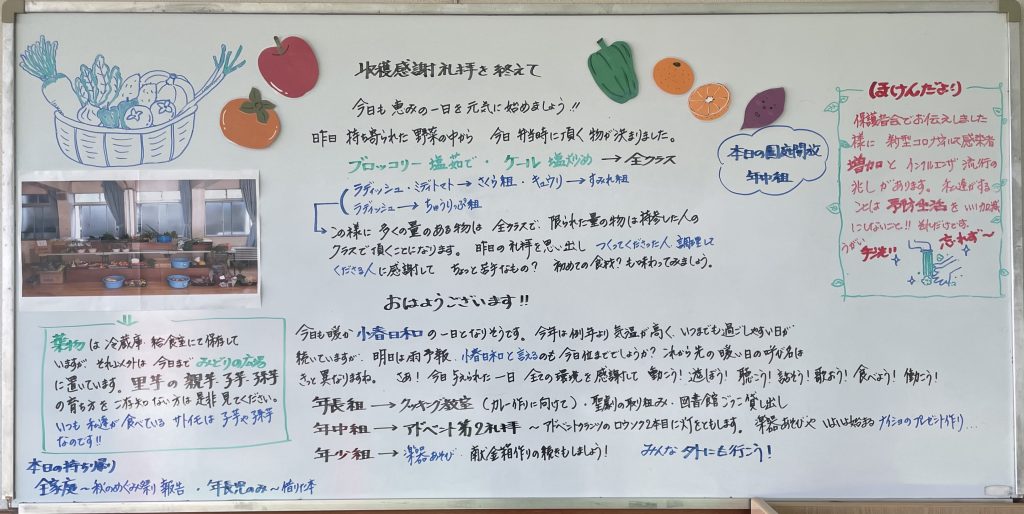 収穫感謝礼拝を終えて
今日も恵みの一日を元気に始めましょう!!
昨日 持ち寄られた 野菜の中から 今日 弁当時に頂く物が決まりました。
ブロッコリー 塩茹で・ケール 塩炒め → 全クラス
ラディッシュ・ミディトマト → さくら組・キュウリ → すみれ組
ラディッシュ → ちゅうりっぷ組
この様に 多くの量のある物は 全クラスで、限られた量の物は持参した人の
クラスで頂くことになります。 昨日の礼拝を思い出し つくってくださった人 調理して
くださる人に感謝して ちょっと苦手なもの? 初めての食材? も味わってみましょう。
本日の園庭開放
年中組
ほけんだより
保護者会でお伝えしました
様に 新型コロナ 感染者
増加と インフルエンザ 流行の
兆しがあります。 私達がする
ことは 予防生活を いい加減
にしないこと!!
うがい
手洗い
忘れず~
おはようございます!!
今日も暖か 小春日和の一日となりそうです。 今年は例年より気温が高く、いつまでも過ごしやすい日が
続いていますが、明日は雨予報、小春日和と言えるのも今日位まででしょうか? これから先の暖い日の呼び名は
きっと異なりますね。 さあ! 今日与えられた一日 全ての環境を感謝して 動こう! 遊ぼう! 聴こう! 話そう! 歌おう! 食べよう! 働こう!
年長組 → クッキング教室 (カレー作りに向けて)・聖劇の取り組み・図書館ごっこ貸し出し
年中組 → アドベント第2礼拝 ~ アドベントクランツのロウソク2本目に灯をともします。 楽器あそびや いよいよ始まる ナイショのプレゼント作り...
年少組 → 楽器あそび・献金箱作りの続きもしましょう! みんな外にも行こう!
葉物は 冷蔵庫・給食室にて保存して
いますが、それ以外は 今日まで みどりの広場
に置いています。 里芋の 親芋・子芋・孫芋
の育ち方を ご存知ない方は是非見てください。
いつも 私達が食べている サトイモは 子芋や孫芋
なのです!!
本日の持ち帰り
全家庭 ~ 秋のめぐみ祭り報告 ・ 年長児のみ ~ 借りた本